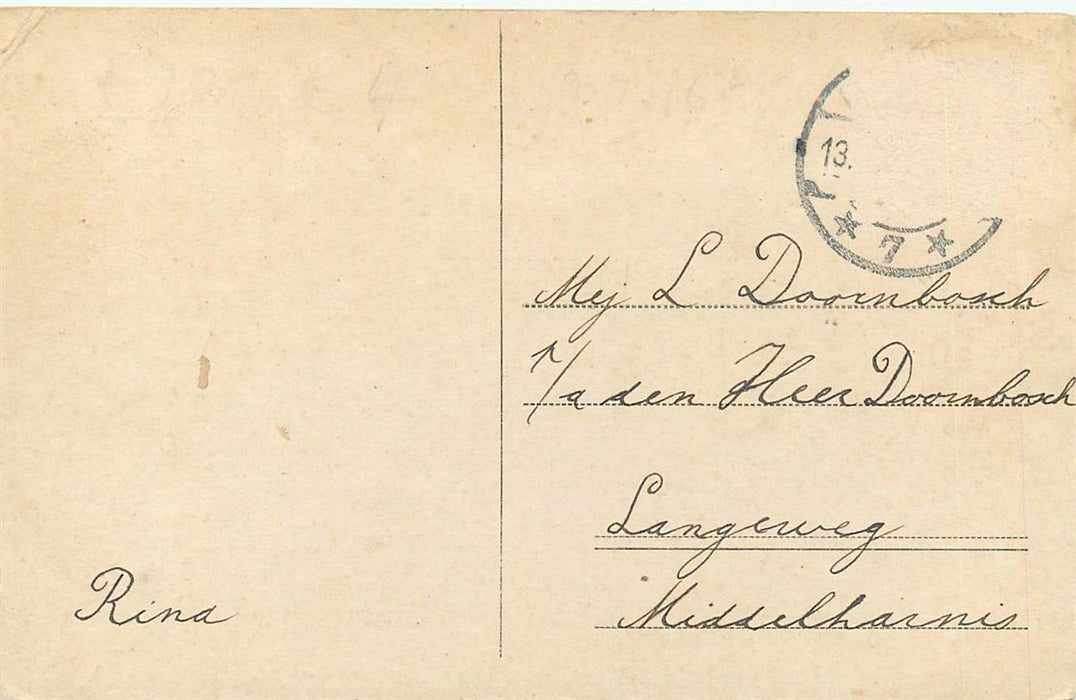 13.
* 7 *
Mej L Doornbosch
p/a den Heer Doornbosch
Langeweg
Middelharnis
Rina